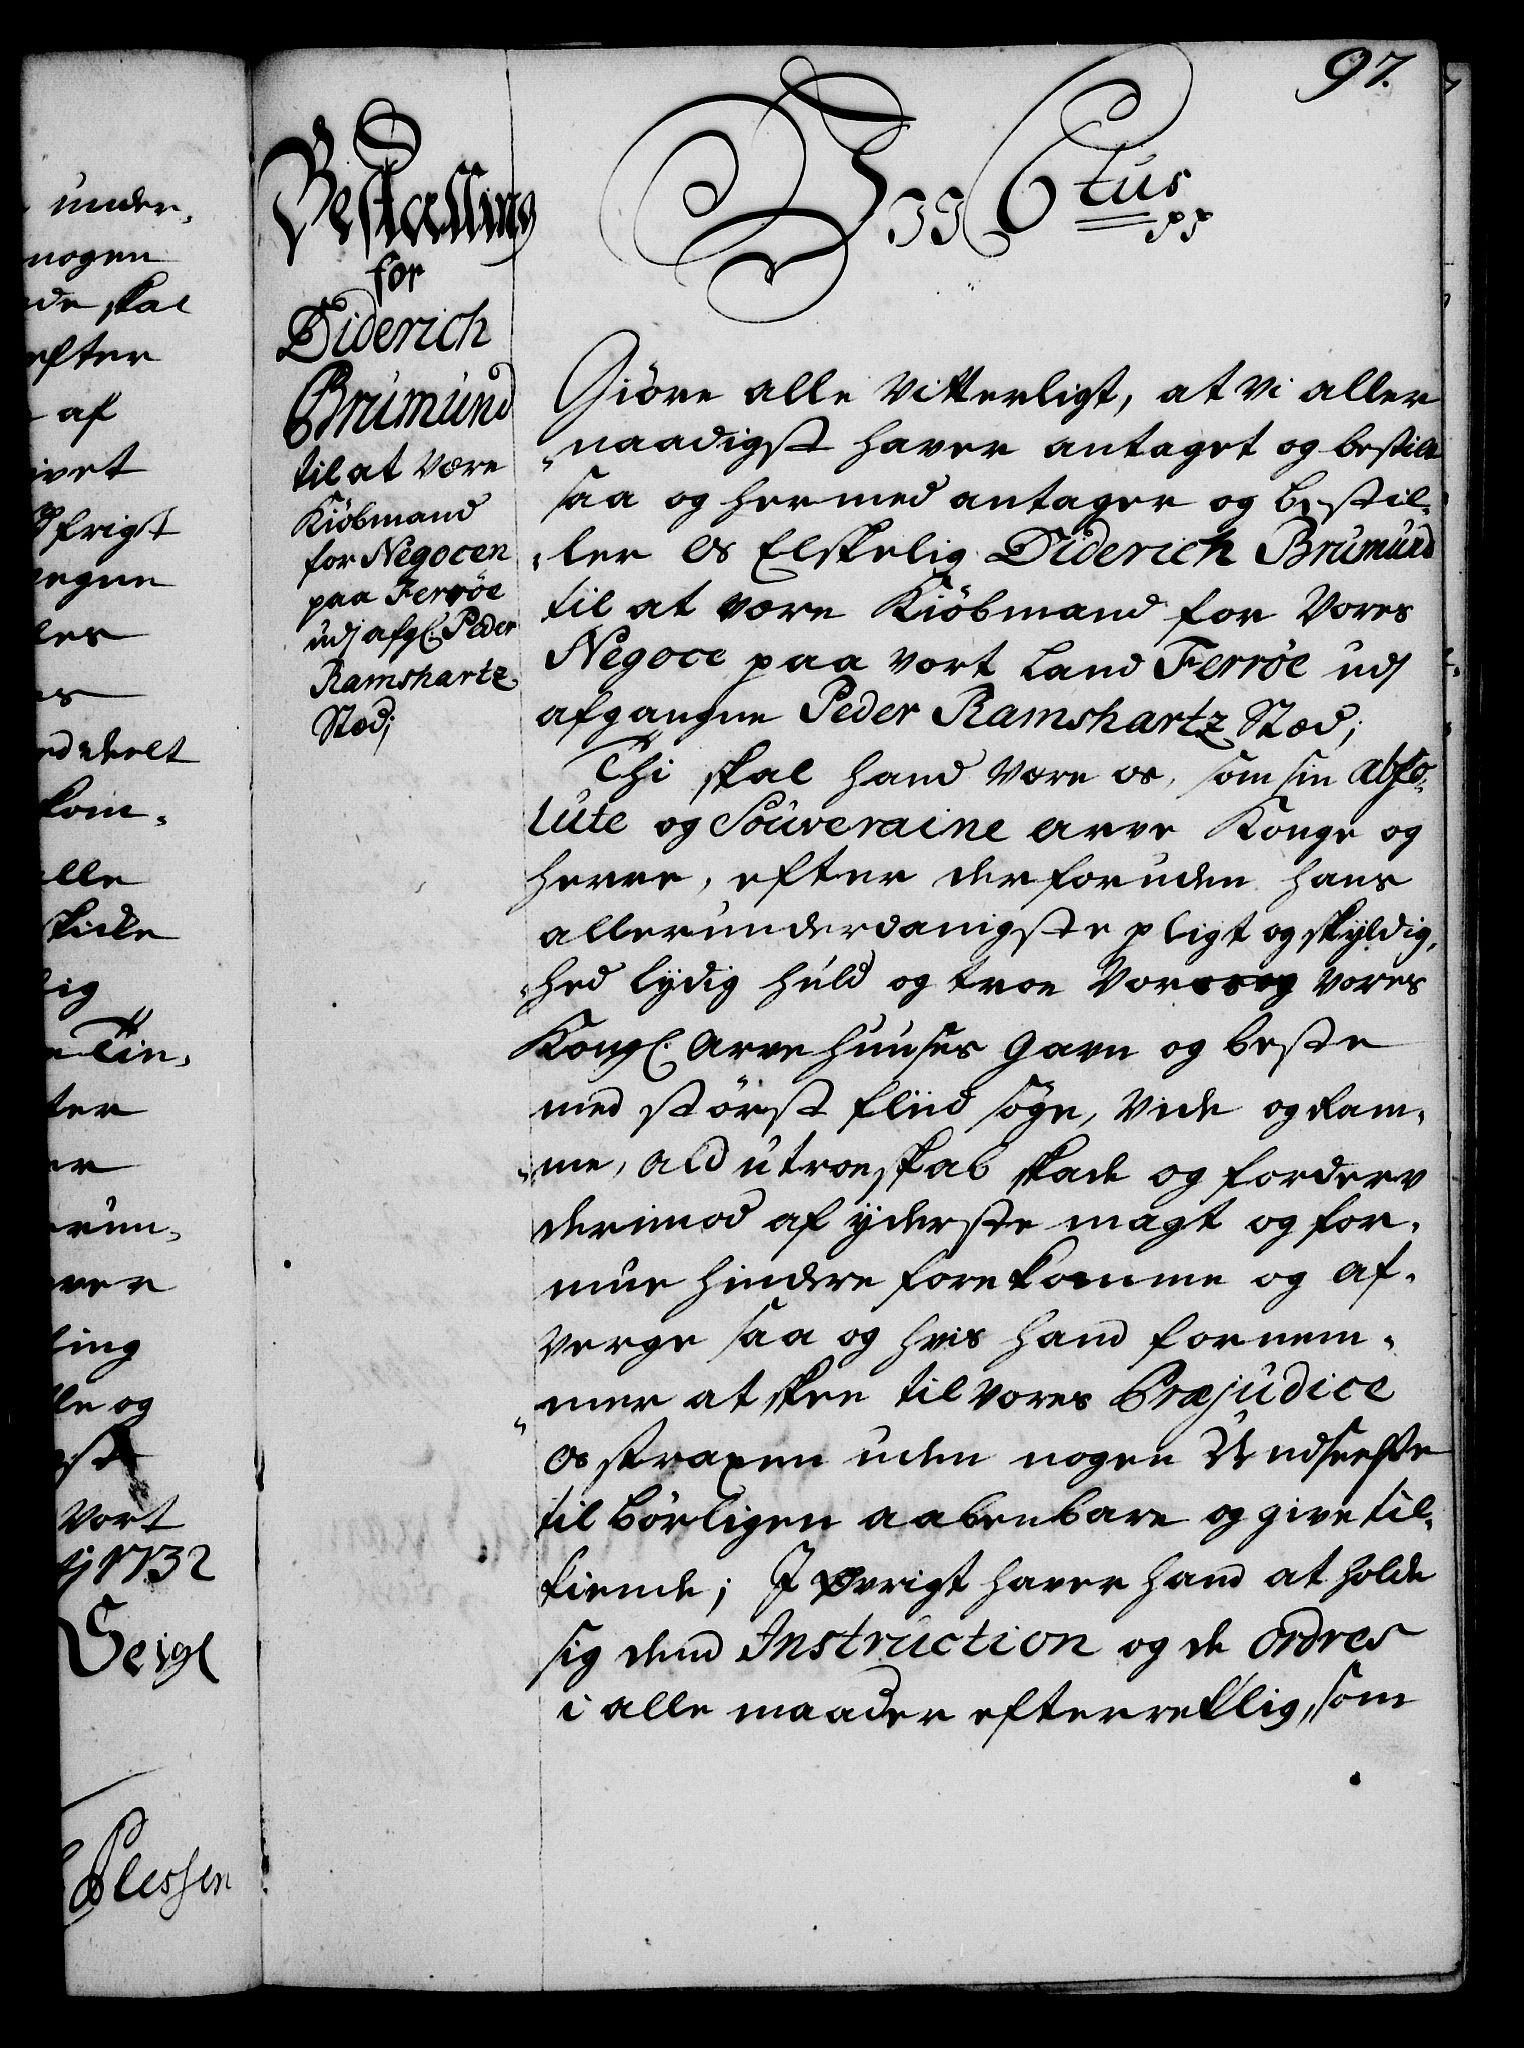 97.
Bestalling
for
Diderich
Brumund
til at være
Kiöbmand
for Negocen
paa Ferröe
udj afgl: Peder
Ramshartz
Stæd;
tus
pp
Giöre alle Vitterligt, at Vi aller
naadigst haver antaget og bestilt
saa og hermed antager og bestil-
ler Os Elskelig Diderich Brumund
til at være Kiöbmand for Vores
Negoce paa vort Land Ferröe udj
afgangne Peder Ramshartz Stæd;
Thi skal hand være os, som sin abso-
lute og Souveraine arve Konge og
Herre, efter derforuden hans
allerunderdanigste pligt og skyldig-
hed lydig huld og troe Vores og Vores
Kongl. Arve Huuses Gavn og beste
med störst fliid söge, Vide og ram-
me, ald utroeskab skade og forderv
derimod af yderste magt og for-
mue hindre forekomme og af-
verge saa og hvis hand fornem-
mer at skee til Vores Præjudice
Os straxen uden nogen Undseelse
tilbörligen aabenbare og give til-
kiende; I Øvrigt haver hand at holde
sig dend Instruction og de Ordres
i alle maader efterretlig, som
under-
nogen
de skal
efter
af
ivet
frigt
vegne
ler
deelt
kom-
lle
skicke
ig
Tin-
ter
er
run-
ver
ling
lle og
Vort
1732
Seigl
Plessen